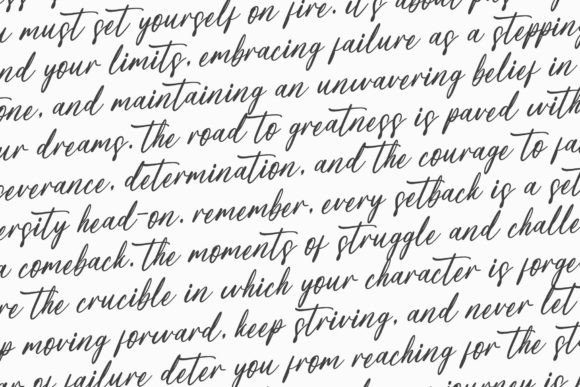 u must set yourself on fire. it's about
nd your limits, embracing failure as a stepping
one, and maintaining an unwavering belief in
ur dreams. the road to greatness is paved with
severance, determination, and the courage to fa
ersity head-on. remember, every setback is a set
a comeback. the moments of struggle and challe
re the crucible in which your character is forge
p moving forward, keep striving, and never let
ar of failure deter you from reaching for the sta
journey is